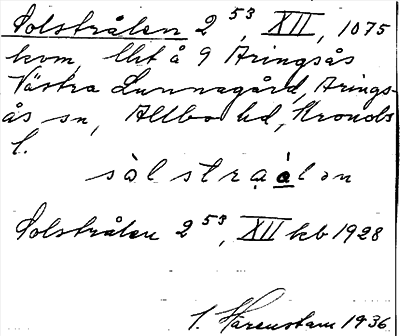 Solstrålen 2 53, XII, 1075
kvm, lht å 9 Aringsås
Västra Lunnagård, Arings-
ås sn, Allbo hd, Kronobs
l.
sòlstrạ́ạlən
Solstrålen 2 53, XII kb 1928
S. Härenstam 1936